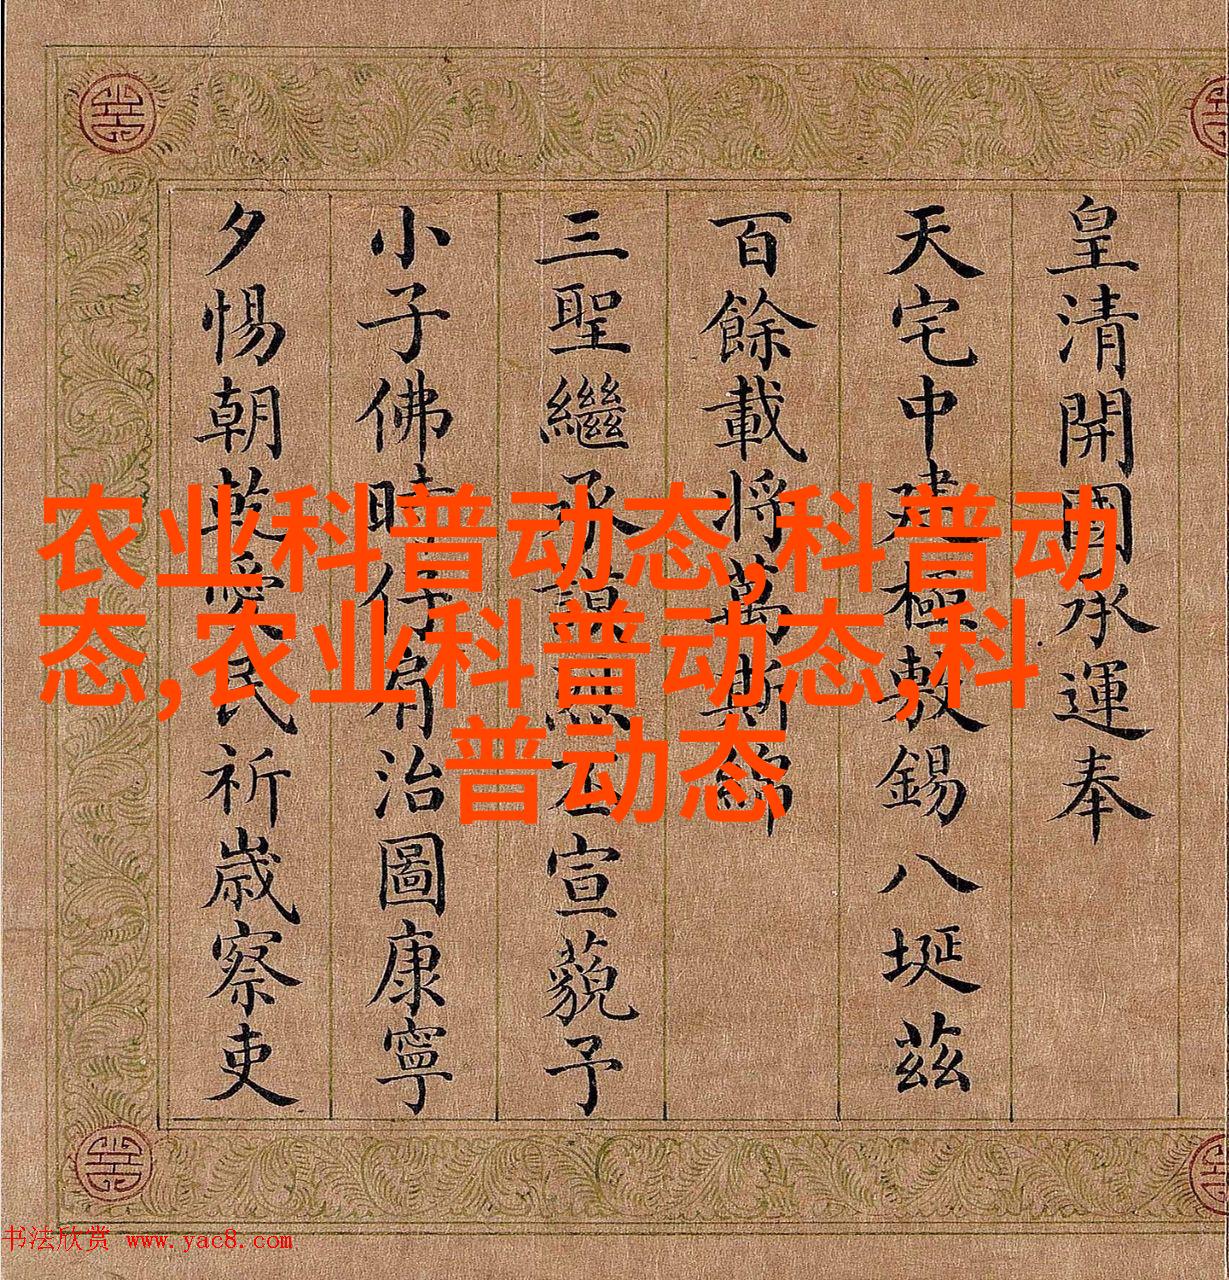 皇清開國承運奉
天宅中建極敷錫八埏茲
百餘載將萬斯綿
三聖繼承謨烈丕宣藐予
小子佛時仔肩治圖康寧
夕惕朝乾愛民祈歲察吏
农业科普动态,科普动
态,农业科普动态,科
普动态
书法欣赏 www.yac8.com